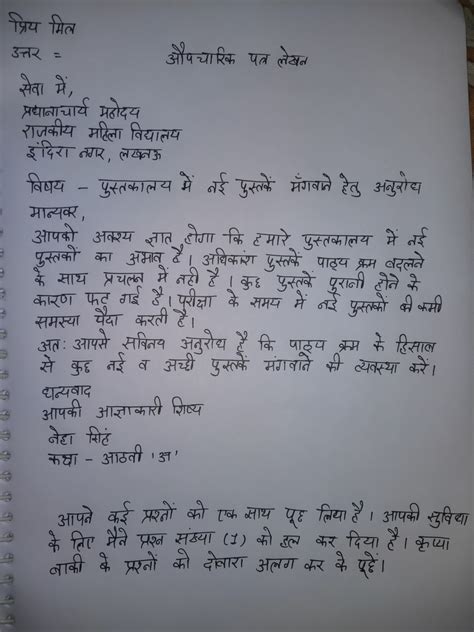 प्रिय मित्र
उत्तर =
औपचारिक पत्र लेखन
सेवा में,
प्रधानाचार्य महोदय
राजकीय महिला विद्यालय
इंदिरा नगर, लखनऊ
विषय - पुस्तकालय में नई पुस्तकें मँगवाने हेतु अनुरोध
मान्यवर,
आपको अवश्य ज्ञात होगा कि हमारे पुस्तकालय में नई
पुस्तकों का अभाव है। अधिकांश पुस्तकें पाठ्य क्रम बदलने
के साथ प्रचलन में नही है। कुछ पुस्तकें पुरानी होने के
कारण फट गई है। परीक्षा के समय में नई पुस्तकों की कमी
समस्या पैदा करती है।
अतः आपसे सविनय अनुरोध है कि पाठ्य क्रम के हिसाल
से कुछ नई व अच्छी पुस्तकें मंगवाने की व्यवस्था करें।
धन्यवाद
आपकी आज्ञाकारी शिष्य
नेहा सिंह
कक्षा - आठवी 'अ'
आपने कई प्रश्नों को एक साथ पूछ लिया है। आपकी सुविधा
के लिए मैंने प्रश्न संख्या (1) को हल कर दिया है। कृप्या
बाकी के प्रश्नों को दोबारा अलग कर के पूछें।